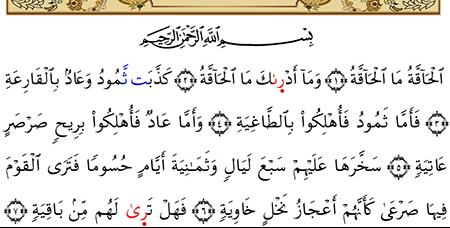 بِسْمِ اللَّهِ الرَّحْمَٰنِ الرَّحِيمِ
اَ۬لْحَاقَّةُ مَا اَ۬لْحَاقَّةُ ﴿١﴾ وَمَآ أَدْر۪ىٰكَ مَا اَ۬لْحَاقَّةُ ﴿٢﴾ كَذَّبَت ثَّمُودُ وَعَادُۢ بِالْقَارِعَةِ
﴿٣﴾ فَأَمَّا ثَمُودُ فَأُهْلِكُوا۟ بِالطَّاغِيَةِ ﴿٤﴾ وَأَمَّا عَادٌ فَأُهْلِكُوا۟ بِرِيحٍ صَرْصَرٍ
عَاتِيَةٍ ﴿٥﴾ سَخَّرَهَا عَلَيْهِمْ سَبْعَ لَيَالٍ وَثَمَٰنِيَةَ أَيَّامٍ حُسُومًا فَتَرَى اَ۬لْقَوْمَ
فِيهَا صَرْعَىٰ كَأَنَّهُمْ أَعْجَازُ نَخْلٍ خَاوِيَةٍ ﴿٦﴾ فَهَلْ تَر۪ىٰ لَهُم مِّنۢ بَاقِيَةٍ ﴿٧﴾